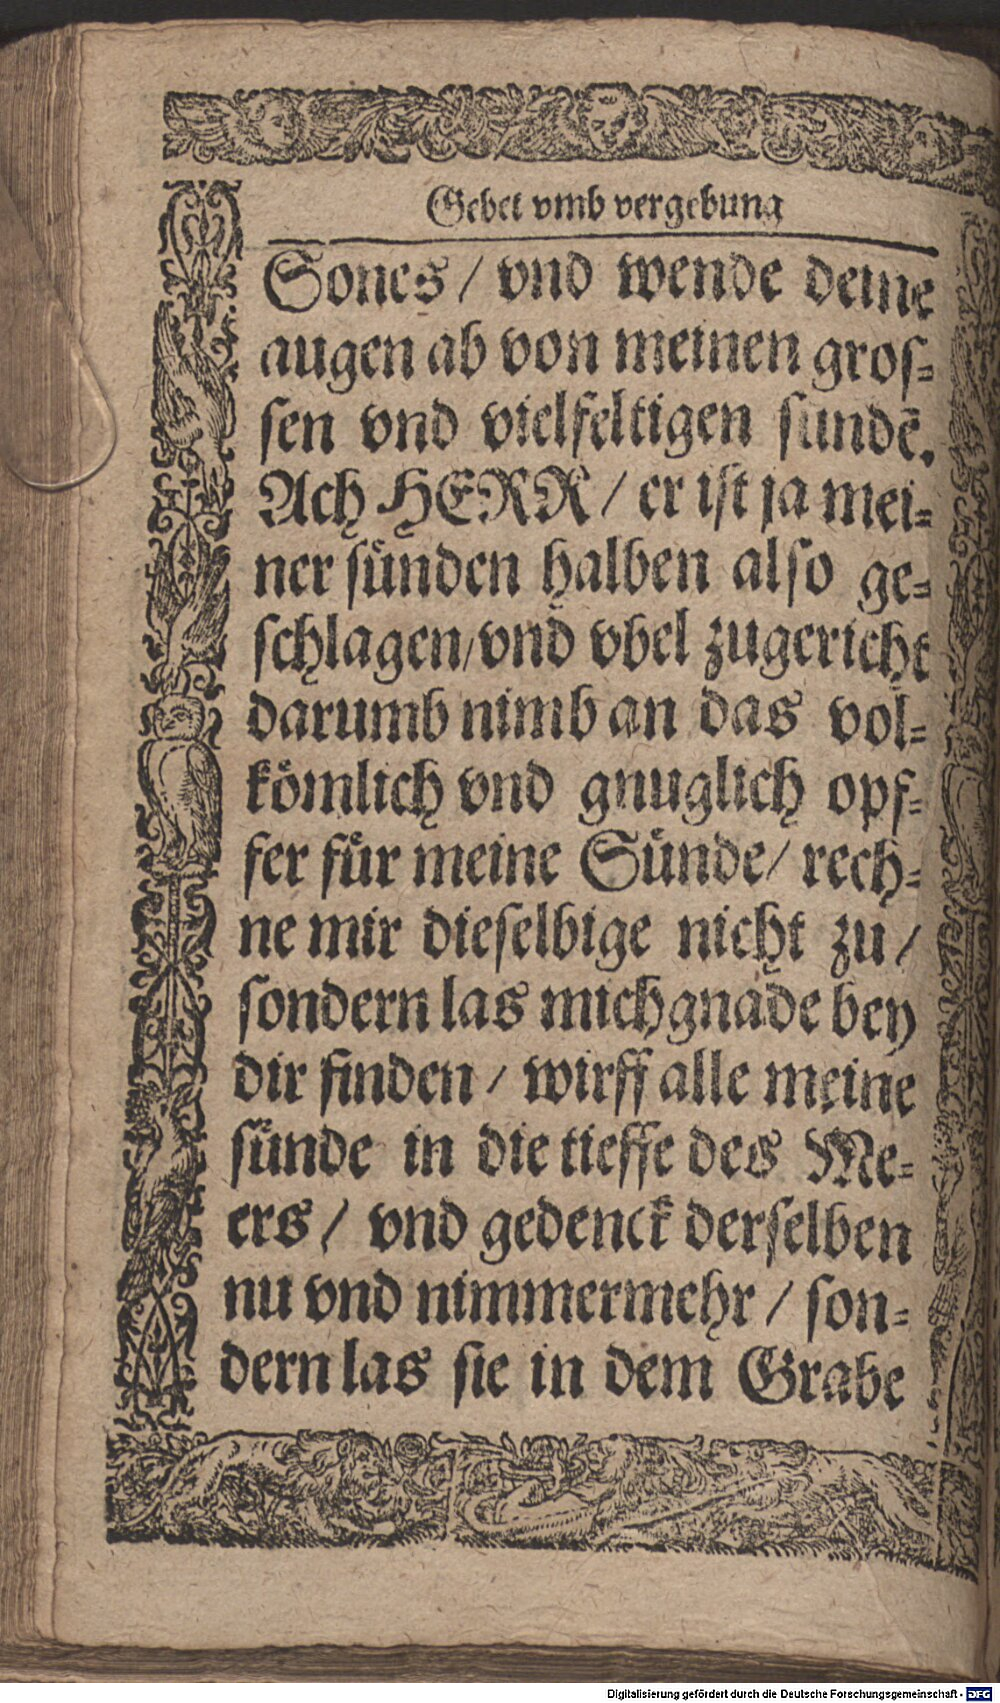 Gebet vmb vergebung
Sones / vnd wende deine
augen ab von meinen gros⸗
sen vnd vielfeltigen sundē.
Ach HERR / er ist ja mei⸗
ner sünden halben also ge⸗
schlagen/vnd vbel zugericht
darumb nimb an das vol⸗
kömlich vnd gnuglich opf⸗
fer für meine Sünde/ rech⸗
ne mir dieselbige nicht zu /
sondern las mich gnade bey
dir finden / wirff alle meine
sünde in die tieffe des Me⸗
ers / vnd gedenck derselben
nu vnd nimmermehr / son⸗
dern las sie in dem Grabe
Digitalisierung gefördert durch die Deutsche Forschungsgemeinschaft - DFG